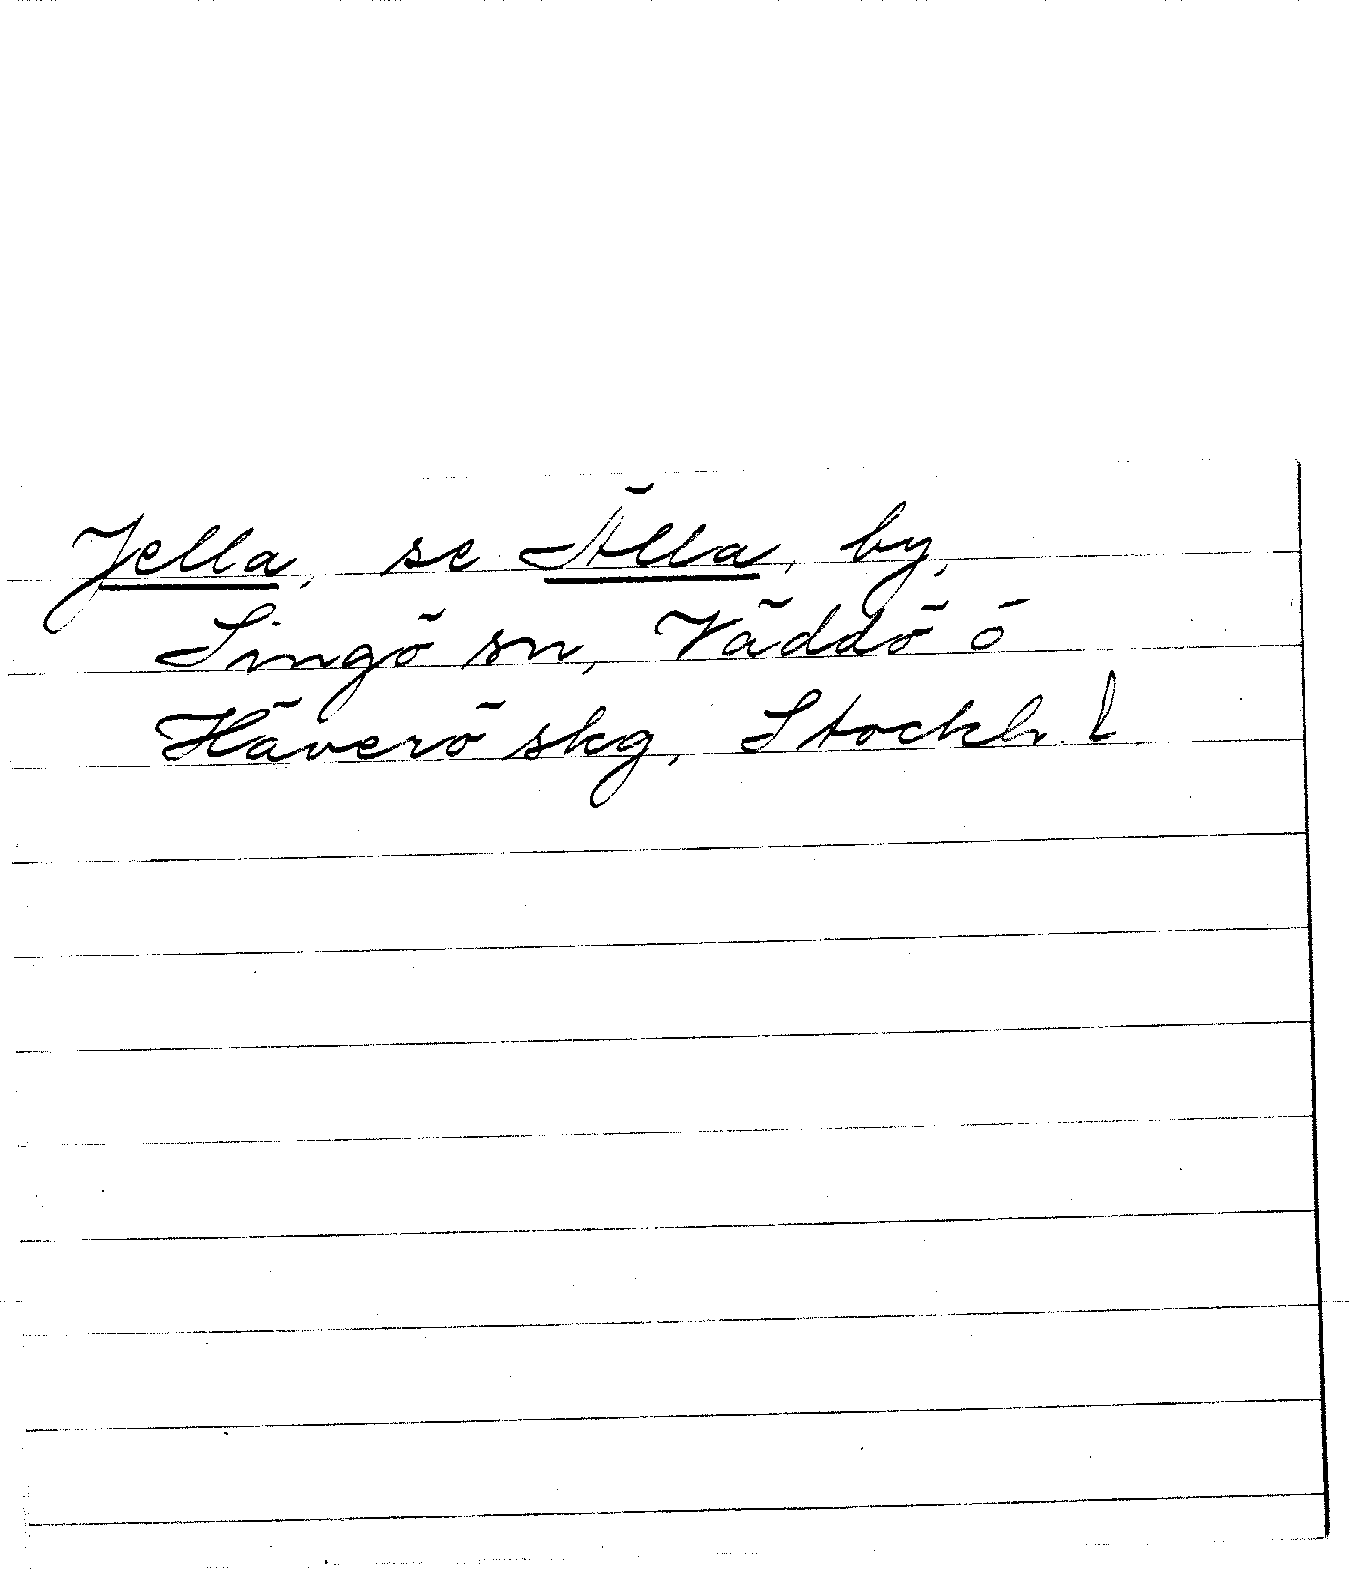 Jella, se Älla, by,
Singö sn, Väddö o
Häverö skg, Stockh. l